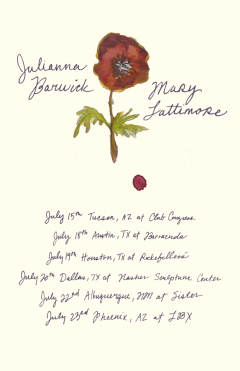 Julianna
Barwick
Mary
Lattimore
July 15th Tucson, AZ at Club Congress
July 18th Austin, TX at Barracuda
July 19th Houston, TX at Rockefellers
July 20th Dallas, TX at Nasher Sculpture Center
July 22nd Albuquerque, NM at Sister
July 23rd Phoenix, AZ at